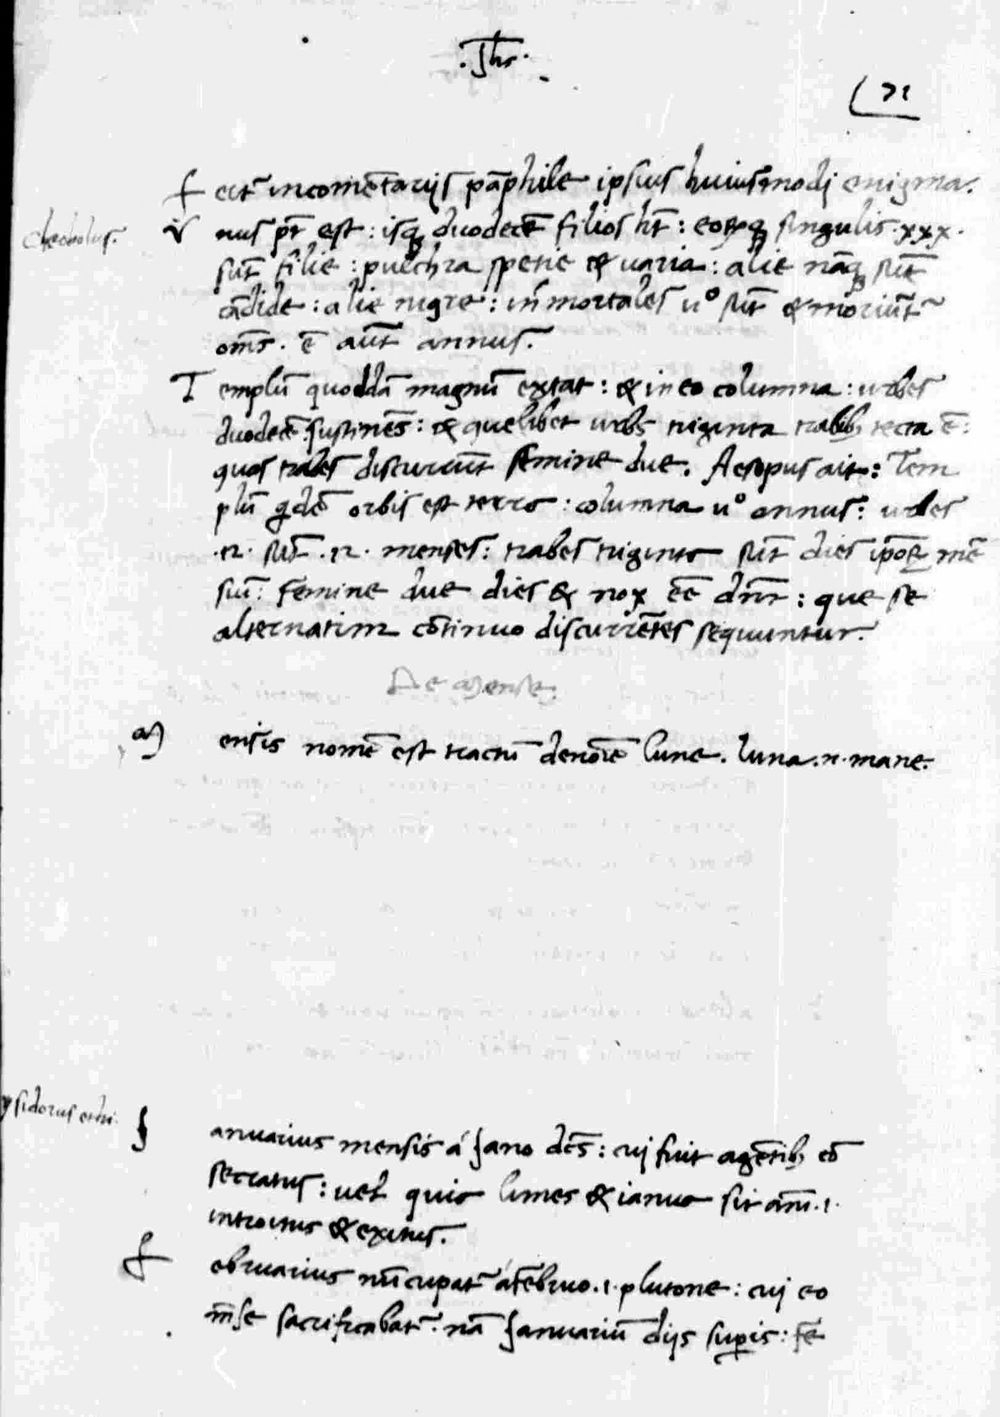 .Jhs.
71
Fert~ incomētarijs pāphile ipsius huiusmodi enigma.
cleobolus.
Vnus pr̄ est: isq3 duodecē filios ht̄: eorq3 singulis .xxx.
sūt filie: pulchra spetie & uaria: alie nāq3 sūt
cādide: alie nigre: in̄mortales uº sūt & moriūt~
oms̄. ē aūt annus.
Templū quoddā magnū extat: & in eo columna: urbes
duodecē sustinēs: & quelibet urbs triginta trabib3 tecta ē:
quos trabes discurrūt femine due. Aesopus ait: Tem
plū qdē orbis est terre: columna uº annus: urbes
.12. sūt .12. menses: trabes triginta sūt dies ipor mē
siū: femine due dies & nox eē dnr̄: que se
alternatim cōtinuo discurrētes sequuntur.
De Mense
Mensis nomē est tractū denoīe lune. luna .n. mane.
ysidorus ethi.
Januarius mensis á Jano dcs̄: cuj fuit agētib3 cō
secratus: uel quia limes & ianua sit am̄ .i.
introitus & exitus.
Februarius nūcupat~ á februo .i. plutone: cuj eo
m̄se sacrificabat~. nā Januariū dijs supis: fē